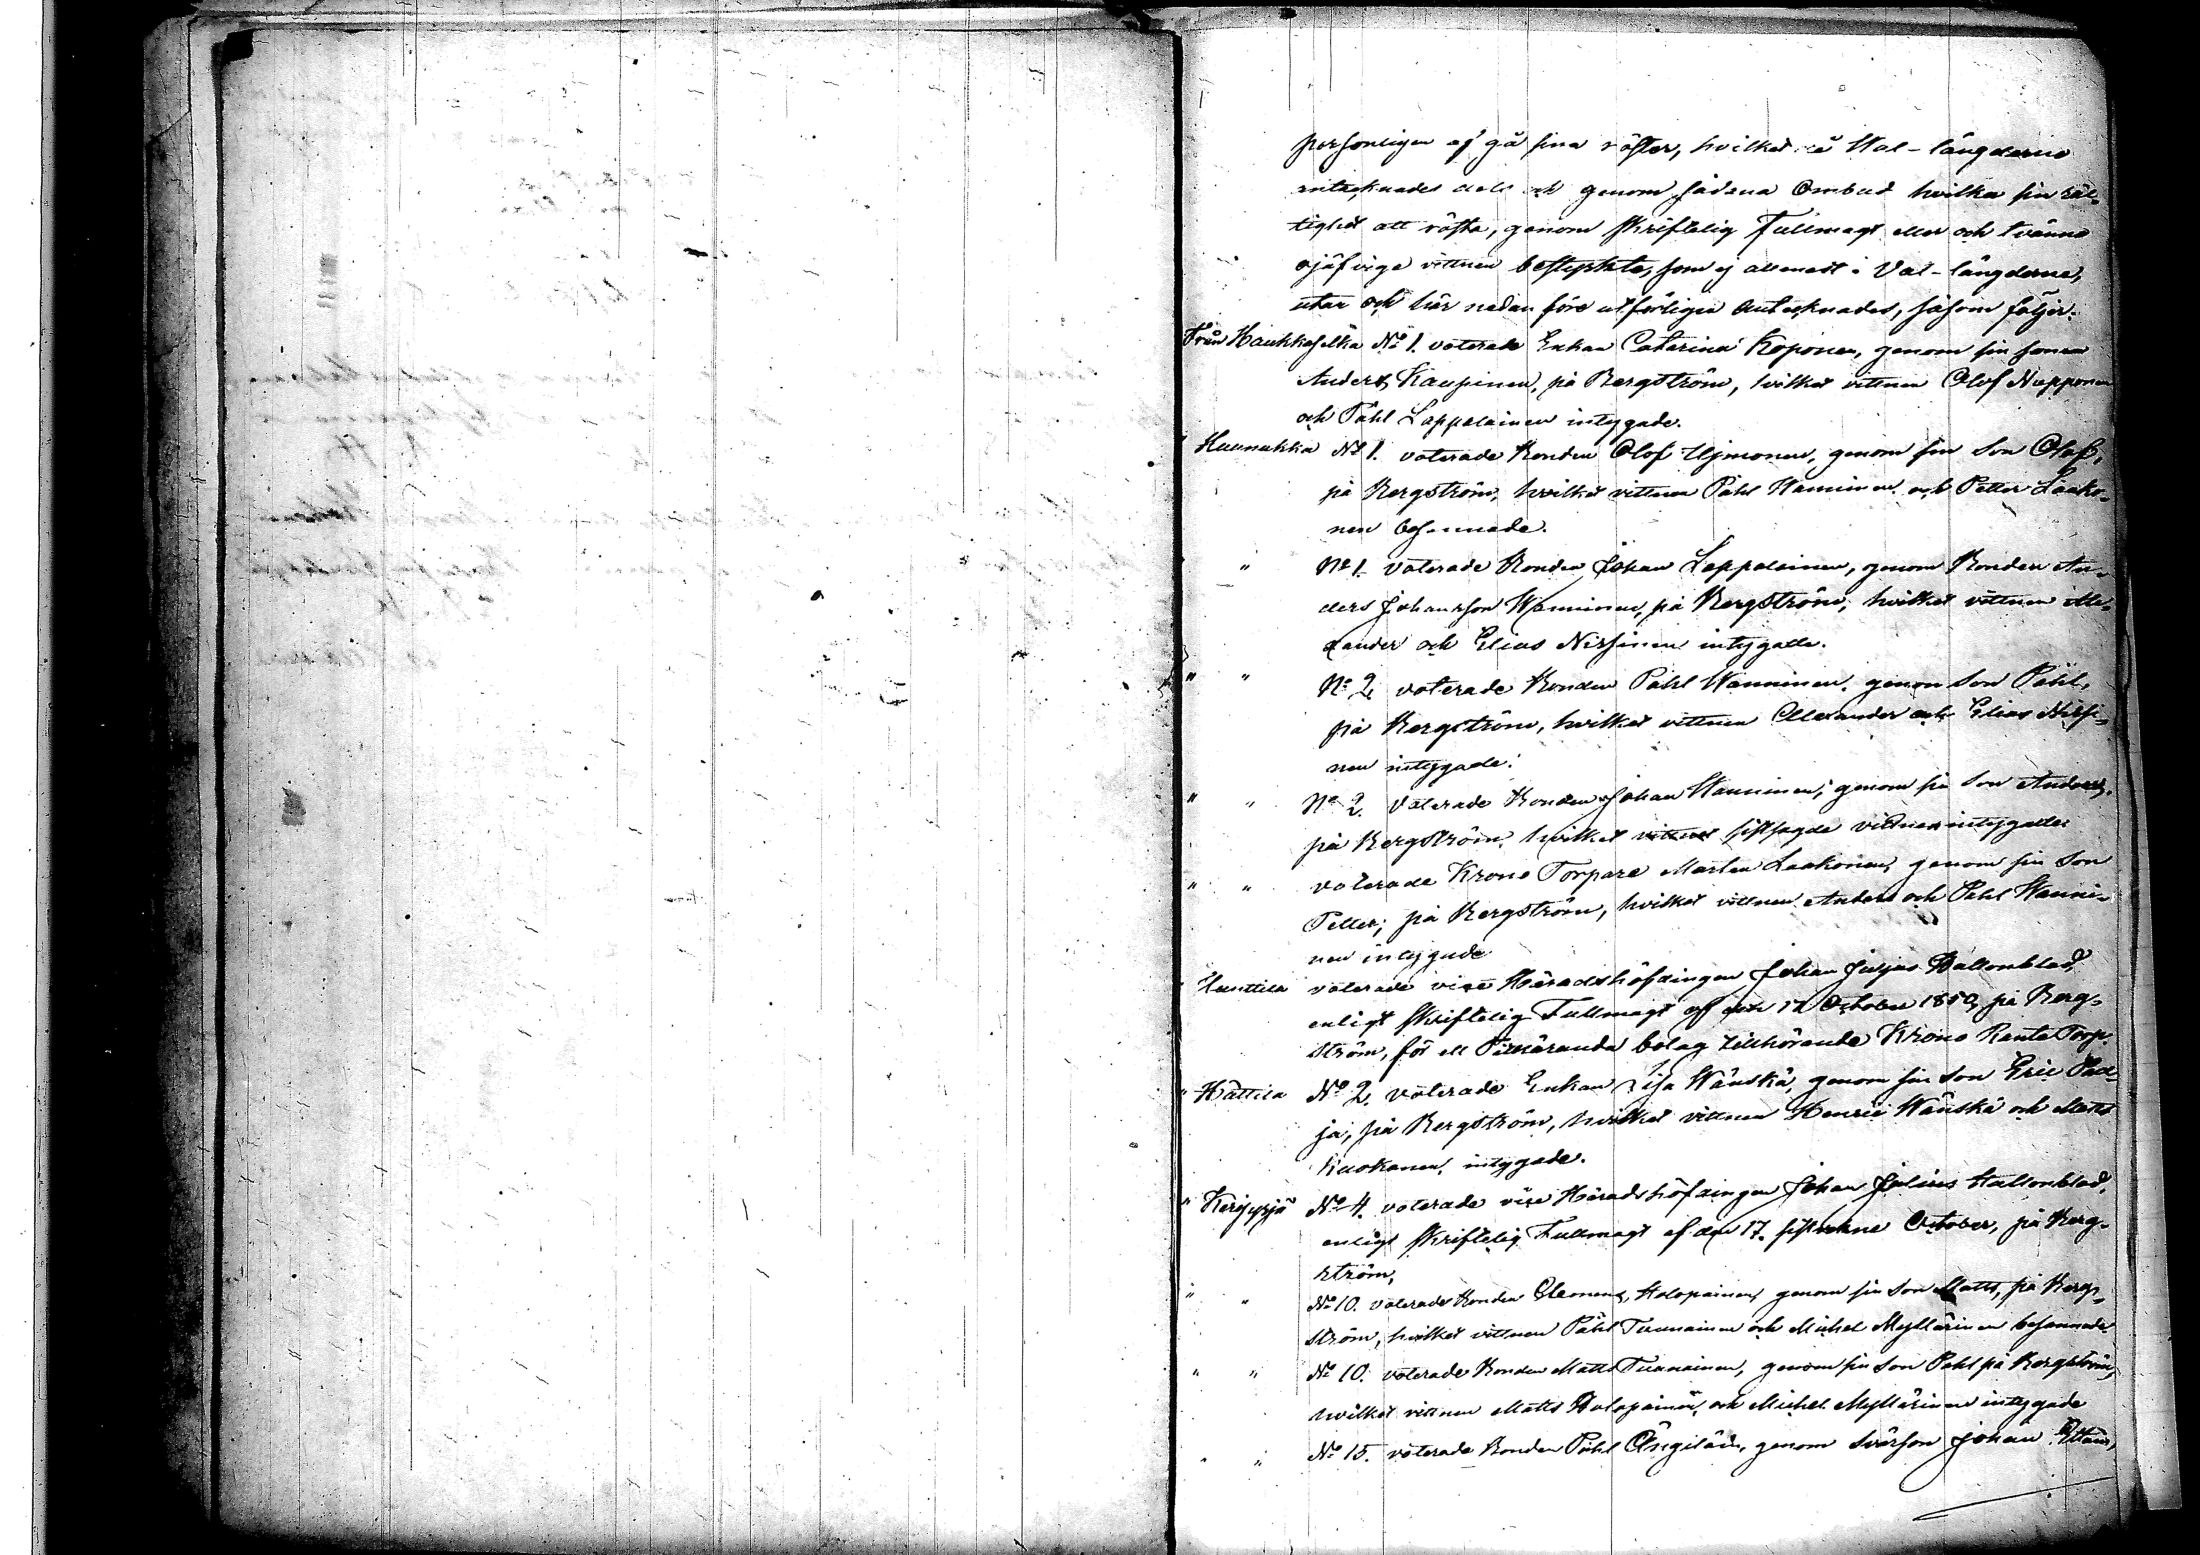 personligen af gå sina röster, hvilket å Wal-längderne
antecknades dels och genom sådana Ombud hvilka sin rät-
tighet att rösta, genom skriftelig Fullmagt eller och tvänne
ojäfvige vittnen bestyrkte, som ej allenast i Val-längderne,
utan och här nedan före utförligen antecknades, såsom följer.
Från Haukkaselkä No 1. voterade Enkan Catarina Koponen, genom sin sonen
Anders Kaupinen, på Bergström, hvilket vittnen Olof Nupponen
och Påhl Lappalainen intygade.
" Huunukka No 1. voterade Bonden Olof Ujmonen, genom sin Son Olof,
på Bergström, hvilket vittnen Påhl Wanninen och Petter Laako-
nen besannade.
" " No 1. voterade Bonden Johan Lappalainen, genom Bonden An-
ders Johansson Wanninen, på Bergström, hvilket vittnen Ale-
xander och Elias Nissinen intygade.
" " No 2 voterade Bonden Påhl Wanninen, genom Son Påhl,
på Bergström, hvilket vittnen Alexander och Elias Nissi-
nen intygade.
" " No 2. voterade Bonden Johan Wanninen, genom sin Son Anders,
på Bergström, hvilket sistsagde vittnen intygade.
" " voterade Krono Torpare Mårten Laakonen, genom sin Son
Petter, på Bergström, hvilket vittnen Anders och Påhl Wanni-
nen intygade
" Hunttila voterade vice Häradshöfdingen Johan Julius Hallonblad,
enligt skriftelig Fullmagt af den 12 October 1859, på Berg-
ström, för ett Pitkäranda bolag tillhörande Krono Rante Torp.
" Hättilä No 2. voterade Enkan Lisa Wänskä, genom sin Son Eric
på Bergström, hvilket vittnen Henric Wänskä och Matts
Kuokanen, intygade.
" Kerisyrjä No 4. voterade vice Häradshöfdingen Johan Julius Hallonblad,
enligt skriftelig Fullmagt af den 17. sistvekne October, på Berg-
ström,
" " No 10. voterade Bonden Clemens Holopainen genom sin Son Matts, på Berg-
ström, hvilket vittnen Påhl Tuunainen och Michel Myllärinen besannade
" " No 10. voterade Bonden Matts Tuunainen, genom sin Son Påhl på Bergström,
hvilket vittnen Matts Holopainen och Michel Myllärinen intygade
" " No 15. voterade Bonden Påhl genom Svärson Johan